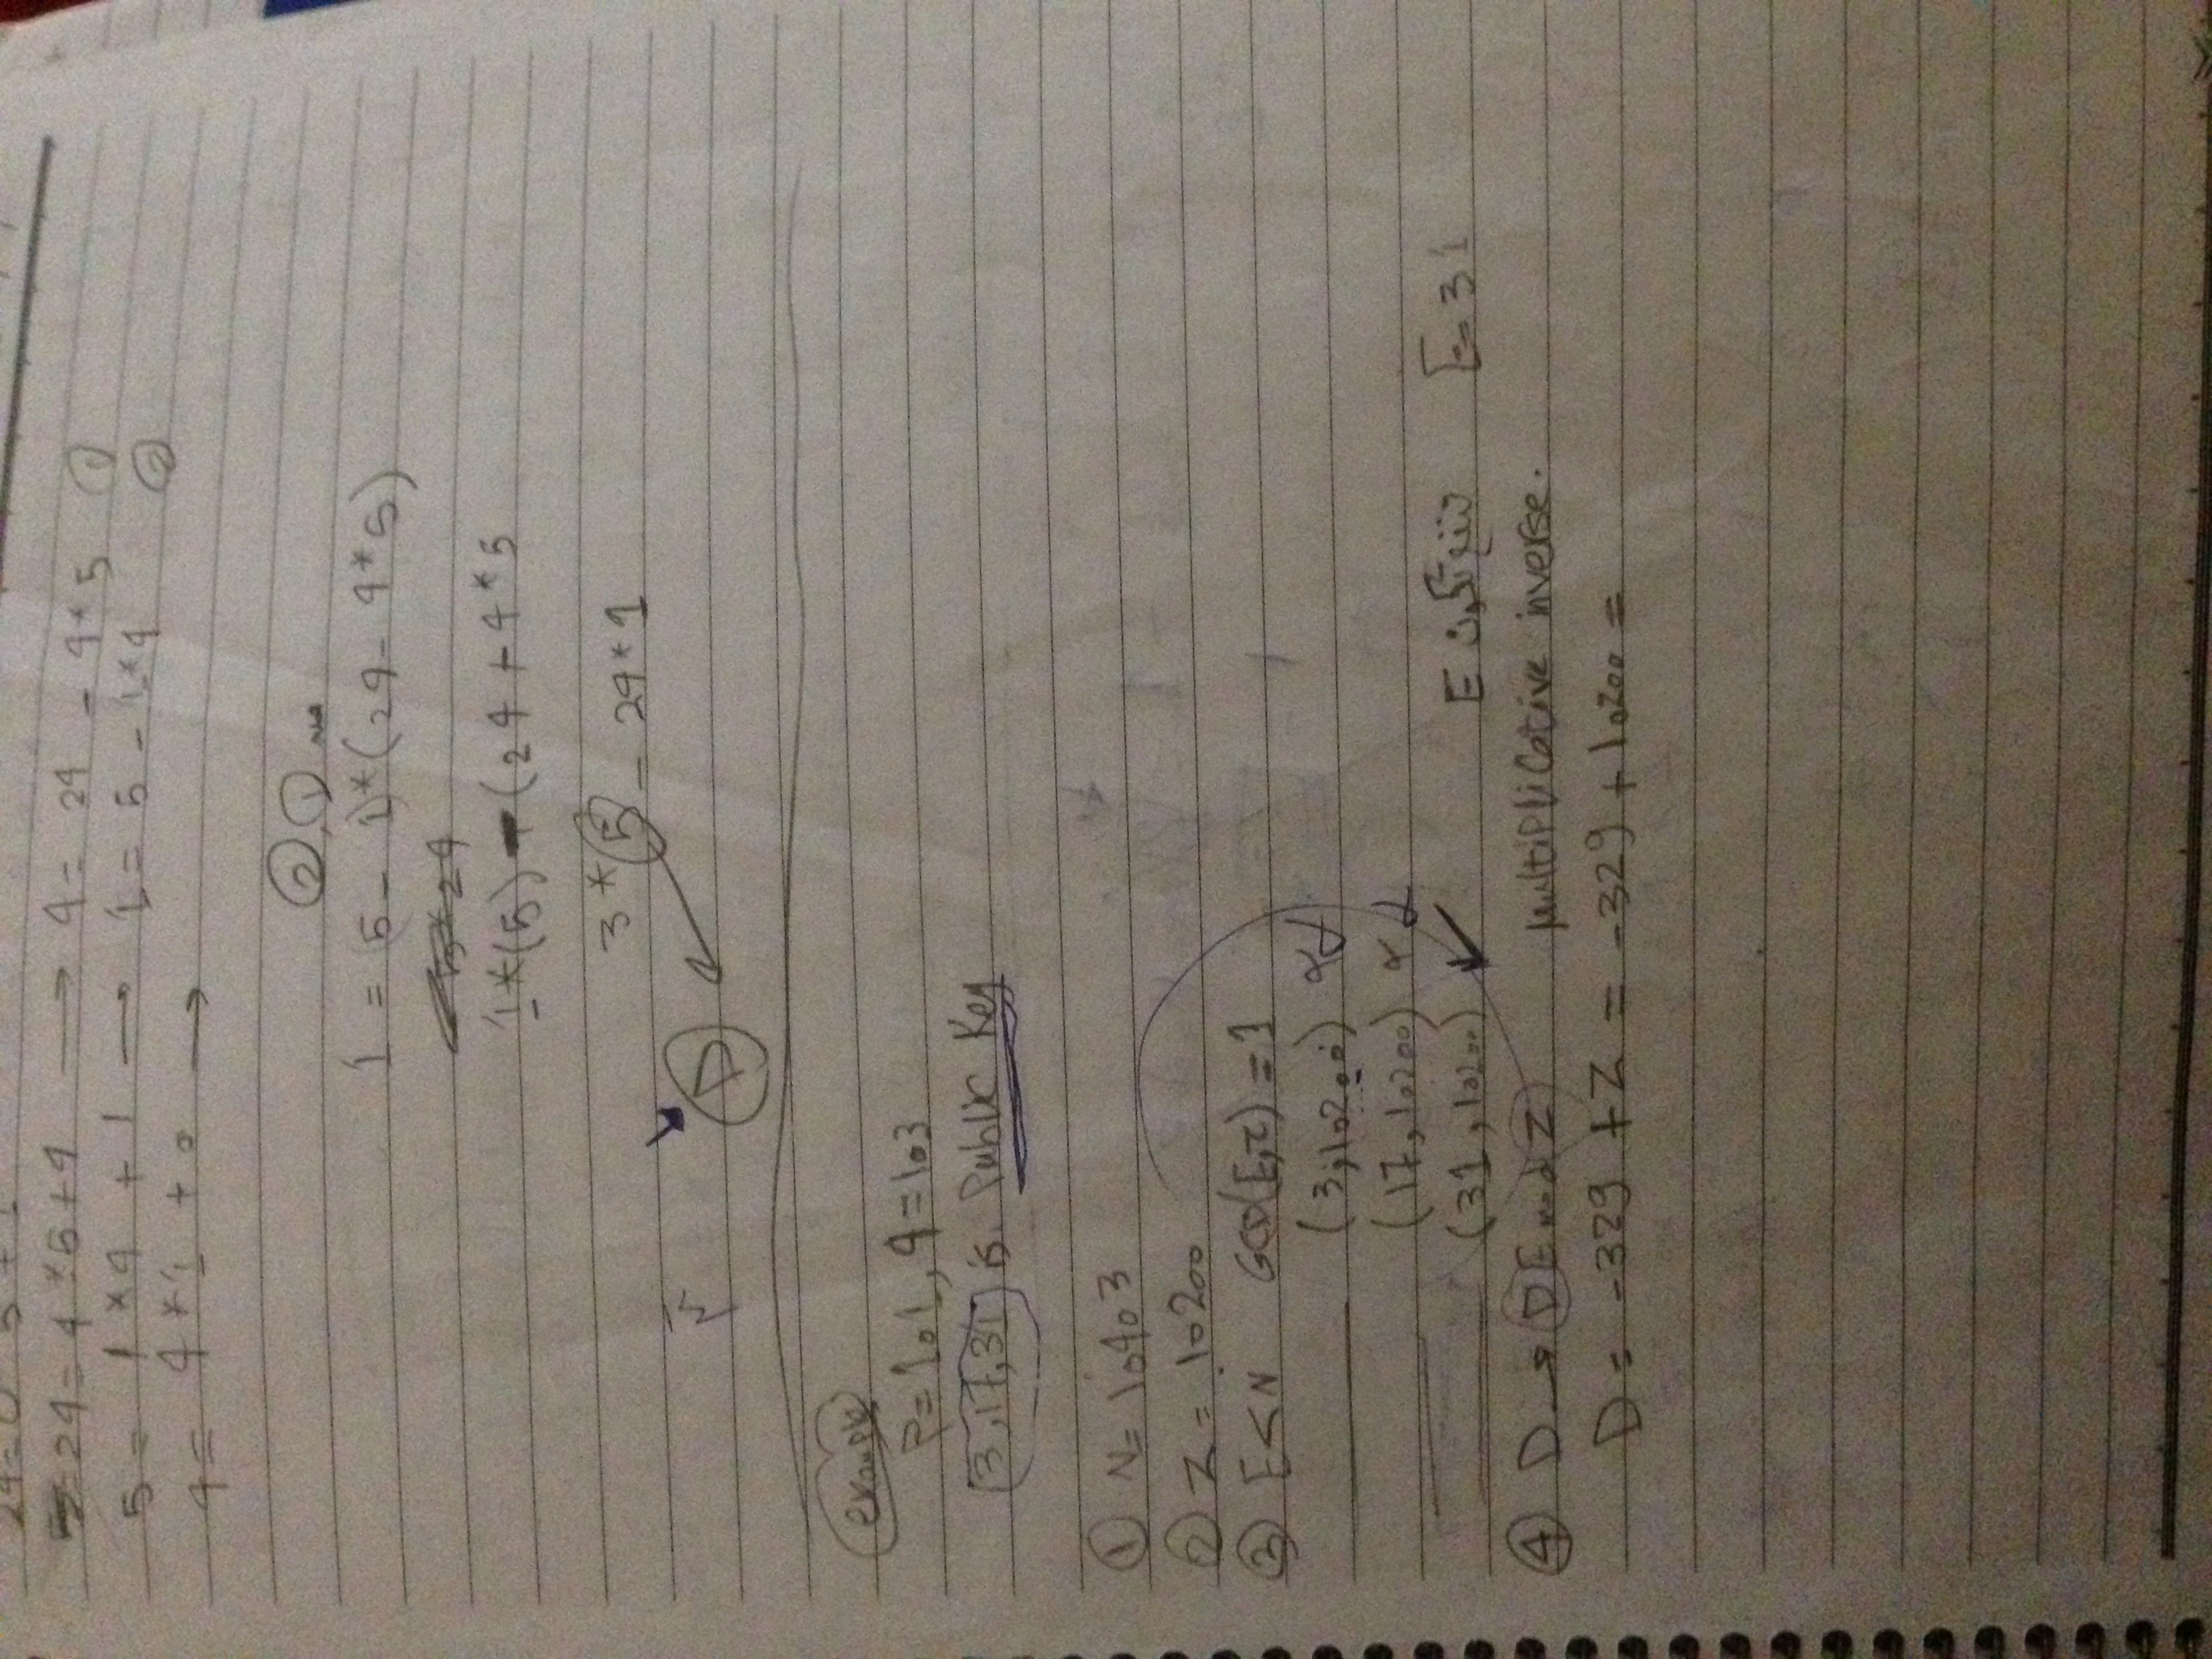 24 = 4 * 5 + 4 → 4 = 24 - 4 * 5 ①
5 = 1 * 4 + 1 → 1 = 5 - 1 * 4 ②
4 = 4 * 1 + 0 →
②, ① من
1 = (5 - 1) * (24 - 4 * 5)
5 * 24
1 * (5) - (24 + 4 * 5
3 * 5 - 24 * 1
D
example
P = 101, q = 103
3, 17, 31 is Public Key
① N = 10403
② Z = 10200
③ E < N GCD(E, z) = 1
(3, 10200)
(17, 10200)
(31, 10200) ✓ E E = 31
④ D → D E mod Z Multiplicative inverse.
D = -329 + Z = -329 + 10200 =